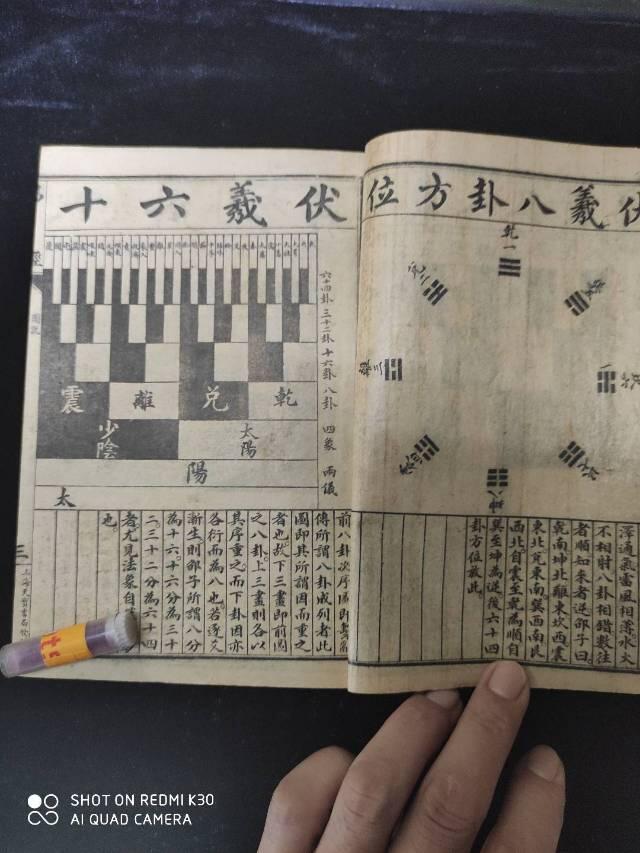 伏羲八卦方位
乾一
兌二
離三
震四
巽五
坎六
艮七
坤八
澤通氣雷風相薄水火
不相射八卦相錯數往
者順知來者逆邵子曰
乾南坤北離東坎西震
東北兌東南巽西南艮
西北自震至乾為順自
巽至坤為逆後六十四
卦方位倣此
伏羲六十
六十四卦
三十二卦
十六卦
八卦
四象
兩儀
乾
兌
離
震
太陽
少陰
陽
太
前八卦次序圖即繫辭
傳所謂八卦成列者此
圖即其所謂因而重之
者也故下三畫即前圖
之八卦上三畫則各以
其序重之而下卦因亦
各衍而為八也若逐爻
漸生則邵子所謂八分
為十六十六分為三十
二三十二分為六十四
者尤見法象自
也
圖說
三
上海天寶書局
SHOT ON REDMI K30
AI QUAD CAMERA